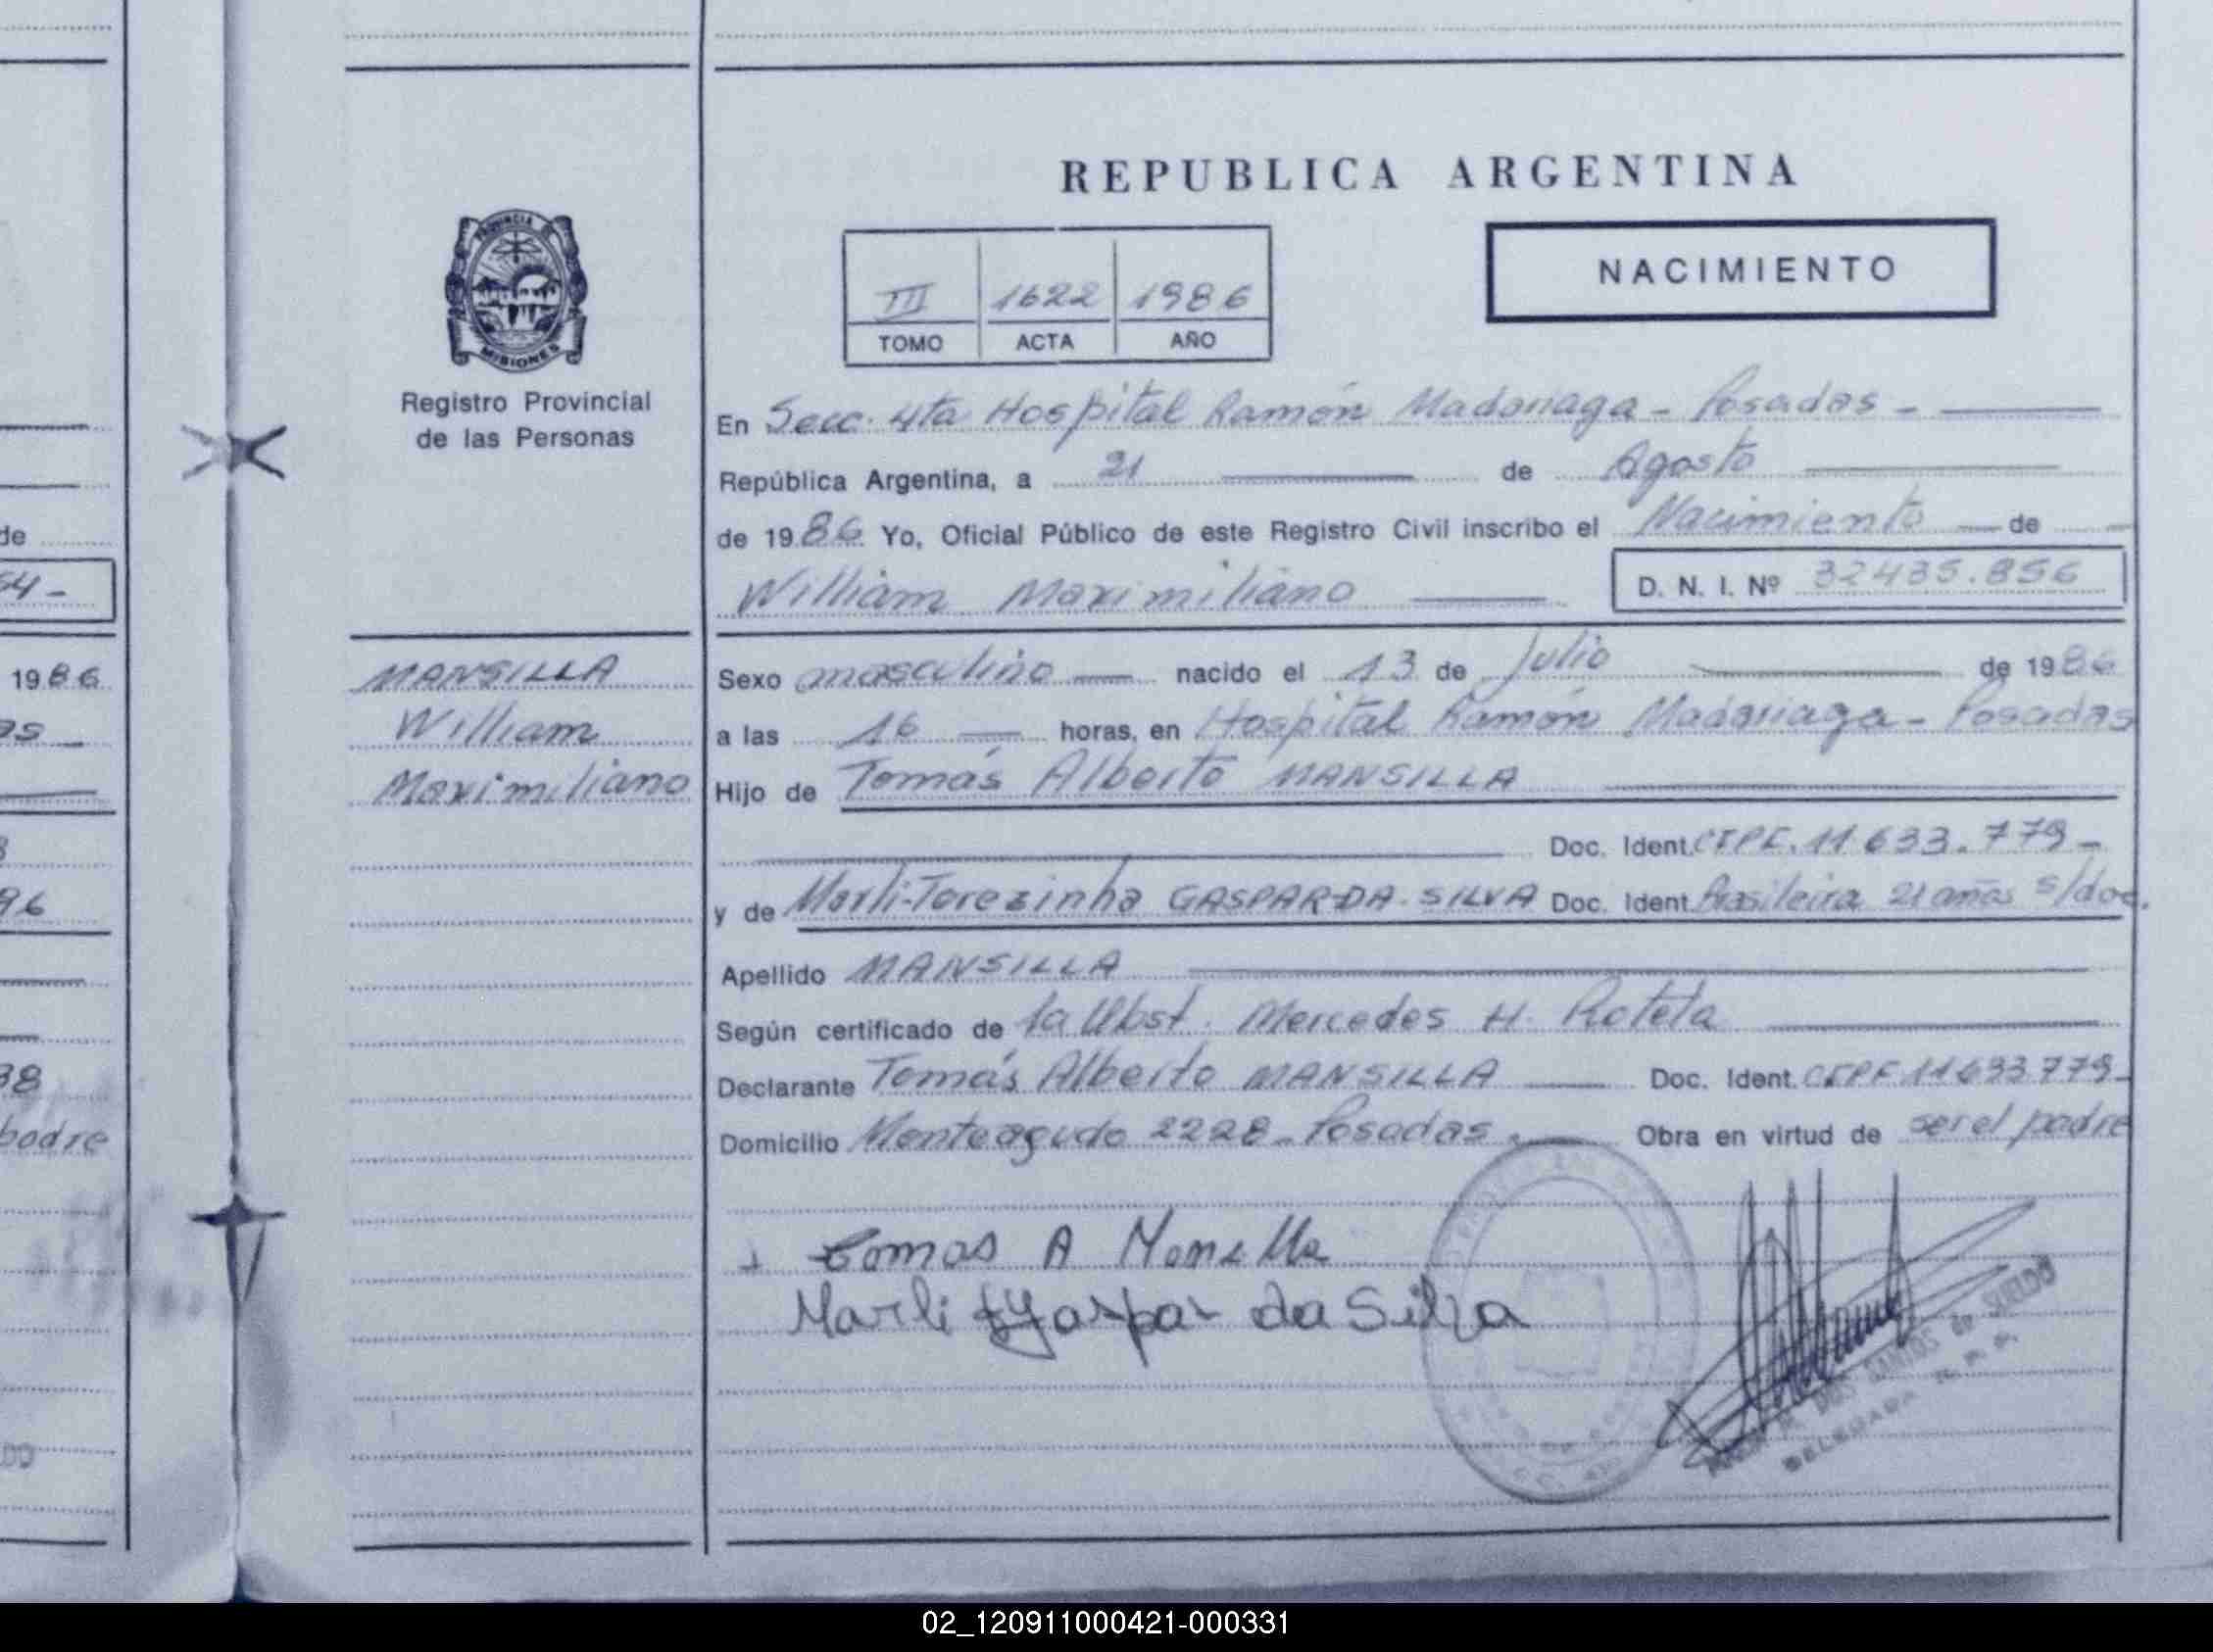 REPUBLICA ARGENTINA
PROVINCIA DE
MISIONES
Registro Provincial
de las Personas
III 1622 1986
TOMO ACTA AÑO
NACIMIENTO
En Secc. 4ta Hospital Ramón Madariaga - Posadas -
República Argentina, a 21 de Agosto
de 1986 Yo, Oficial Público de este Registro Civil inscribo el Nacimiento de
William Maximiliano D. N. I. Nº 32435.856
MANSILLA
William
Maximiliano
Sexo masculino nacido el 13 de Julio de 1986
a las 16 horas, en Hospital Ramón Madariaga - Posadas
Hijo de Tomás Alberto MANSILLA
Doc. Ident. CIPF. 11.633.779-
y de Marli-Terezinha GASPAR-DA-SILVA Doc. Ident. Brasileira 21 años s/doc.
Apellido MANSILLA
Según certificado de la Obst. Mercedes H. Rotela
Declarante Tomás Alberto MANSILLA Doc. Ident. CIPF 11633779-
Domicilio Monteagudo 2228 - Posadas. Obra en virtud de ser el padre
Tomas A Mansilla
Marli Gaspar da Silva
DOS SANTOS de SUELDO
DELEGADA
de
54-
1986
as
96
38
padre
DO
02_120911000421-000331